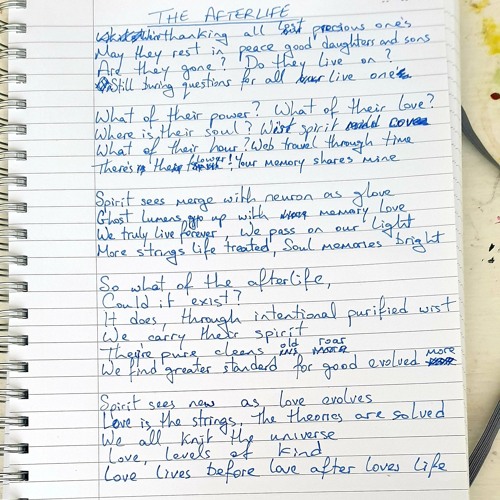 THE AFTERLIFE
thanking all lost precious one's
May they rest in peace good daughters and sons
Are they gone? Do they live on?
Still buring questions for all live one's
What of their power? What of their love?
Where is their soul? spirit
What of their hour? Web travel through time
There's their flower! Your memory shares mine
Spirit sees merge with neuron as glove
Ghost lumens go up with memory love
We truly live forever, We pass on our light
More strings life treated, Soul memories bright
So what of the afterlife,
Could it exist?
It does, through intentional purified wist
We carry their spirit
They're pure cleans old roar
We find greater standard for good evolved more
Spirit sees new as love evolves
Love is the strings, The theories are solved
We all knit the universe
Love, levels of kind
Love lives before love after loves life